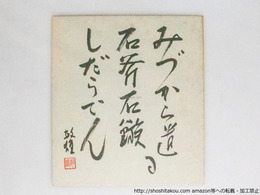 みづから遺る
石斧石鏃
しだらでん
敏雄
http://shoshitakou.com amazon等への転載・加工禁止